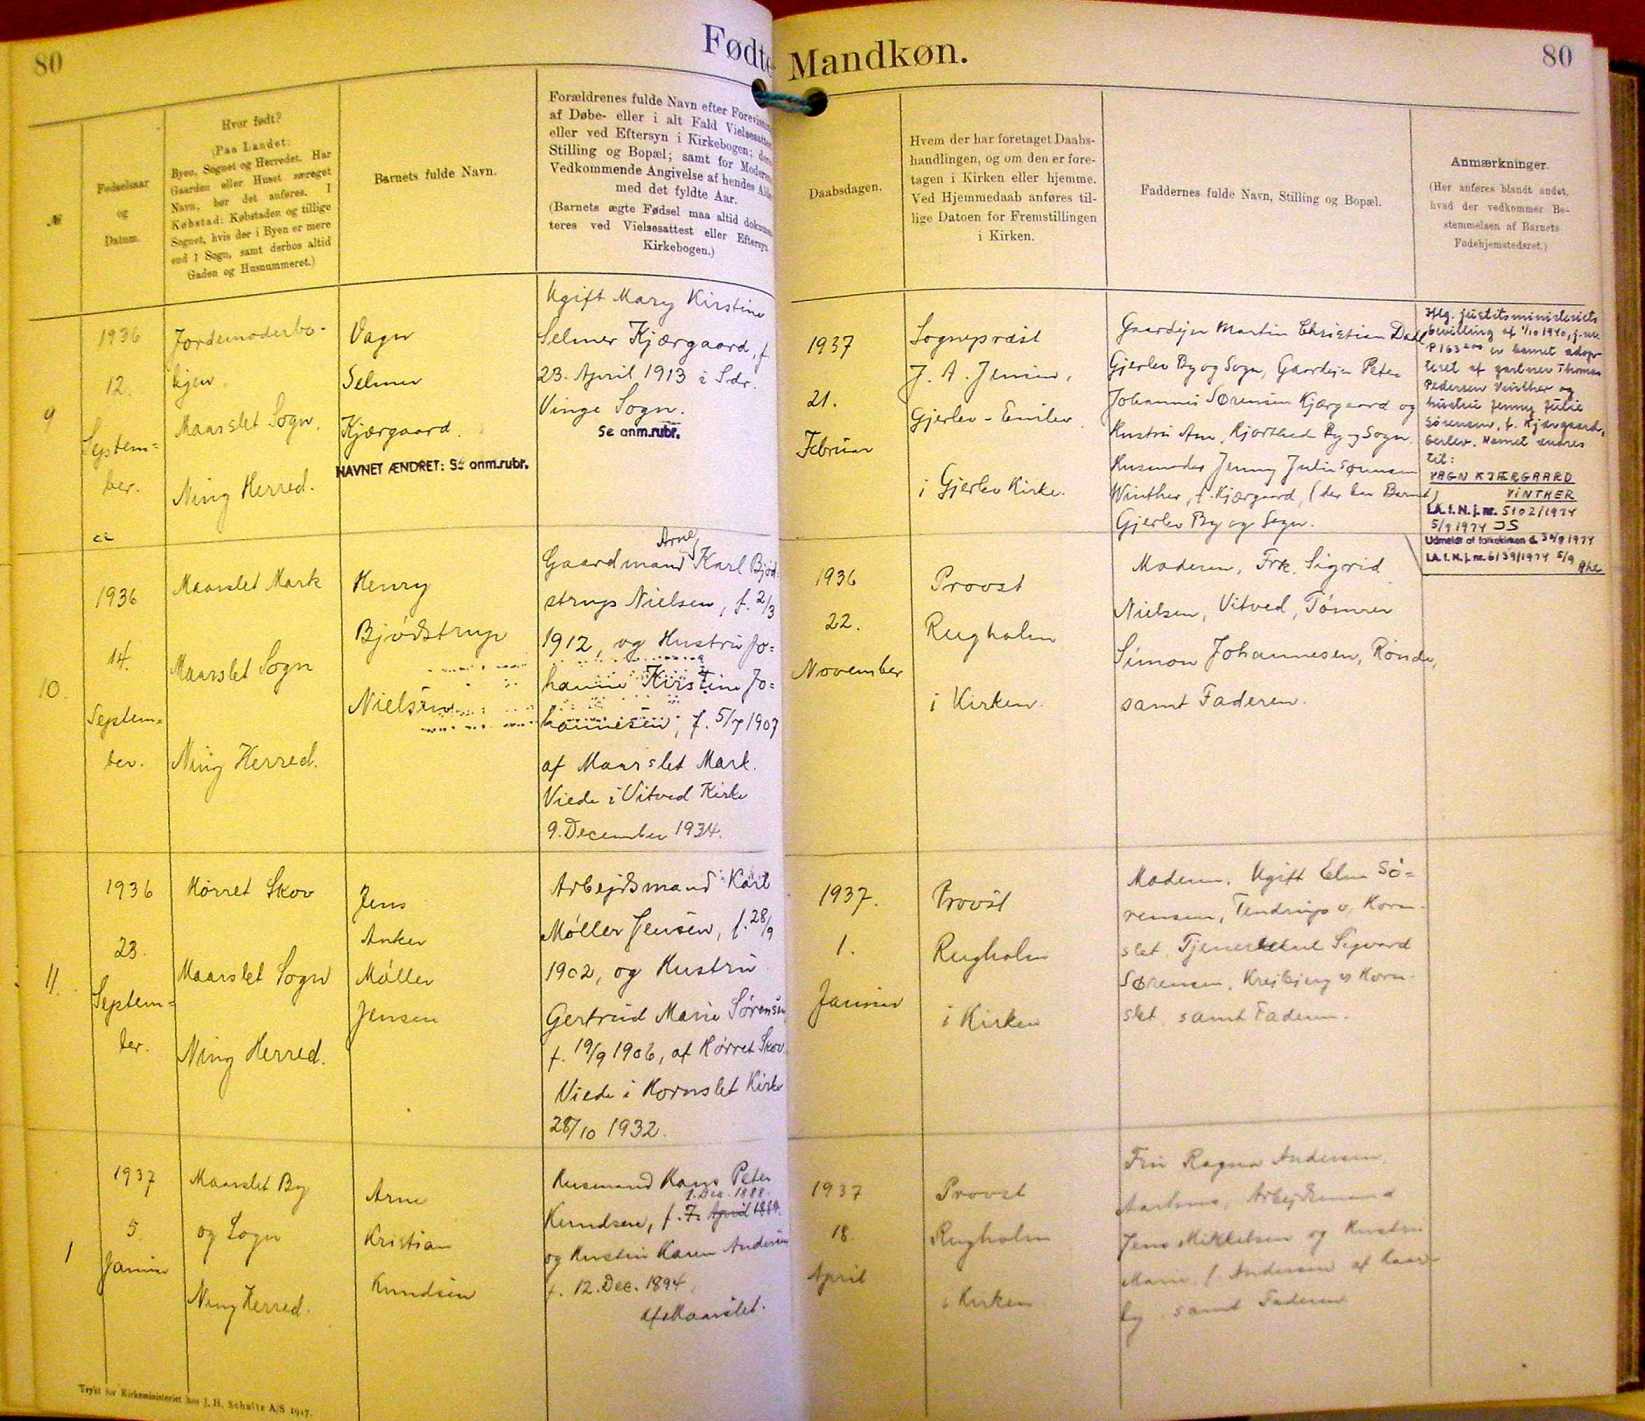 80
Fødte
Mandkøn.
80
№
Fødselsaar
og
Datum.
Hvor født?
(Paa Landet:
Byen, Sognet og Herredet. Har
Gaarden eller Huset særeget
Navn, bør det anføres. I
Købstad: Købstaden og tillige
Sognet, hvis der i Byen er mere
end 1 Sogn, samt derhos altid
Gaden og Husnummeret.)
Barnets fulde Navn.
Forældrenes fulde Navn efter
af Døbe- eller i alt Fald
eller ved Eftersyn i Kirkebogen;
Stilling og Bopæl; samt for
Vedkommende Angivelse af hendes
med det fyldte Aar.
(Barnets ægte Fødsel maa altid
teres ved Vielsesattest eller Eftersyn
Kirkebogen.)
Daabsdagen.
Hvem der har foretaget Daabs-
handlingen, og om den er fore-
tagen i Kirken eller hjemme.
Ved Hjemmedaab anføres til-
lige Datoen for Fremstillingen
i Kirken.
Faddernes fulde Navn, Stilling og Bopæl.
Anmærkninger.
(Her anføres blandt andet,
hvad der vedkommer Be-
stemmelsen af Barnets
Fødehjemstedsret.)
9
1936
12.
Septem=
ber.
Jordemoderbo-
ligen
Maarslet Sogn.
Ning Herred.
Vagn
Selmer
Kjærgaard.
NAVNET ÆNDRET: Se anm.rubr.
Ugift Mary Kirstine
Selmer Kjærgaard, f.
23. April 1913 i Sdr.
Vinge Sogn.
Se anm.rubr.
1937
21.
Februar
Sognepræst
J. A. Jensen,
Gjerlev - Enslev
i Gjerlev Kirke.
Gaardejer Martin Christian Dahl
Gjerlev By og Sogn, Gaardejer Peter
Johannes Sørensen Kjærgaard og
Hustru Ane, By og Sogn.
Husmoder Jenny Julie Sørensen
Winther, f. Kjærgaard, (der bar Barnet)
Gjerlev By og Sogn.
Iflg. justitsministeriets
bevilling af 1/10 1940, j.nr.
er barnet adop-
teret af gartner Thomas
Pedersen Vinther og
hustru Jenny Julie
Sørensen, f. Kjærgaard,
Gerlev. Navnet ændres
til:
VAGN KJÆRGAARD
VINTHER
LA. f. N. j. nr. 5102/1974
5/9 1974 JS
Udmeldt af folkekirken d. 30/9 1974
LA. f. N. j. nr. 6139/1974 5/9
10.
1936
14.
Septem=
ber.
Maarslet Mark
Maarslet Sogn
Ning Herred.
Henry
Bjødstrup
Nielsen
Arne
Gaardmand Karl Bjød-
strup Nielsen, f. 2/3
1912, og Hustru Jo=
hanne Kirstine Jo=
hannesen, f. 5/7 1907
af Maarslet Mark.
Viede i Vitved Kirke
9. December 1934.
1936
22.
November
Provst
Rugholm
i Kirken.
Moderen, Frk. Sigrid
Nielsen, Vitved, Tømrer
Simon Johannesen, Rønde,
samt Faderen.
11.
1936
23.
Septem=
ber.
Hørret Skov
Maarslet Sogn
Ning Herred.
Jens
Anker
Møller
Jensen
Arbejdsmand Karl
Møller Jensen, f. 28/9
1902, og Hustru
Gertrud Marie Sørensen
f. 19/9 1906, af Hørret Skov
Viede i Hornslet Kirke
28/10 1932.
1937.
1.
Januar
Provst
Rugholm
i Kirken
Moderen, Ugift Elna Sø=
rensen, Tendrup v. Horn-
slet, Tjenestekarl Sigvard
Sørensen, Krejbjerg v. Horn-
slet, samt Faderen.
1
1937
5.
Januar
Maarslet By
og Sogn
Ning Herred.
Arne
Kristian
Knudsen
Husmand Hans Peter
1. Dec. 1888.
Knudsen, f. 7. April
og Hustru Karen Andersen
f. 12. Dec. 1894,
af Maarslet.
1937
18.
April
Provst
Rugholm
i Kirken
Fru Ragna Andersen,
Aarhus, Arbejdsmand
Jens Mikkelsen og Hustru
Marie f. Andersen af
by samt Faderen
Trykt for Kirkeministeriet hos J. H. Schultz A/S 1917.